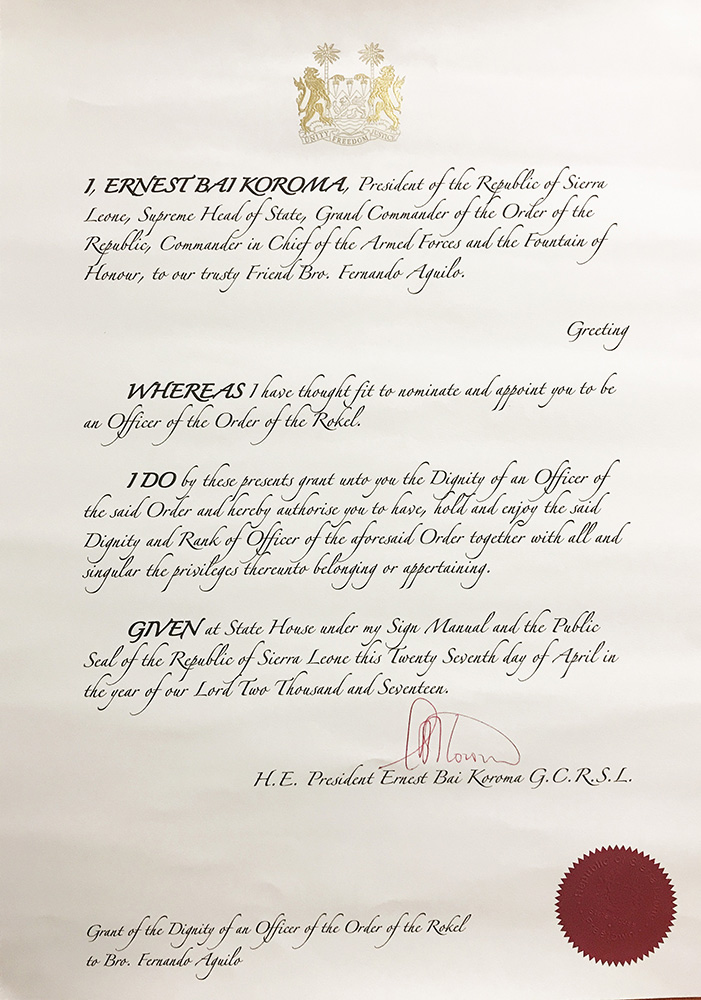 UNITY FREEDOM JUSTICE
I, ERNEST BAI KOROMA, President of the Republic of Sierra
Leone, Supreme Head of State, Grand Commander of the Order of the
Republic, Commander in Chief of the Armed Forces and the Fountain of
Honour, to our trusty Friend Bro. Fernando Aguilo.
Greeting
WHEREAS I have thought fit to nominate and appoint you to be
an Officer of the Order of the Rokel.
I DO by these presents grant unto you the Dignity of an Officer of
the said Order and hereby authorise you to have, hold and enjoy the said
Dignity and Rank of Officer of the aforesaid Order together with all and
singular the privileges thereunto belonging or appertaining.
GIVEN at State House under my Sign Manual and the Public
Seal of the Republic of Sierra Leone this Twenty Seventh day of April in
the year of our Lord Two Thousand and Seventeen.
H.E. President Ernest Bai Koroma G.C.R.S.L.
Grant of the Dignity of an Officer of the Order of the Rokel
to Bro. Fernando Aguilo